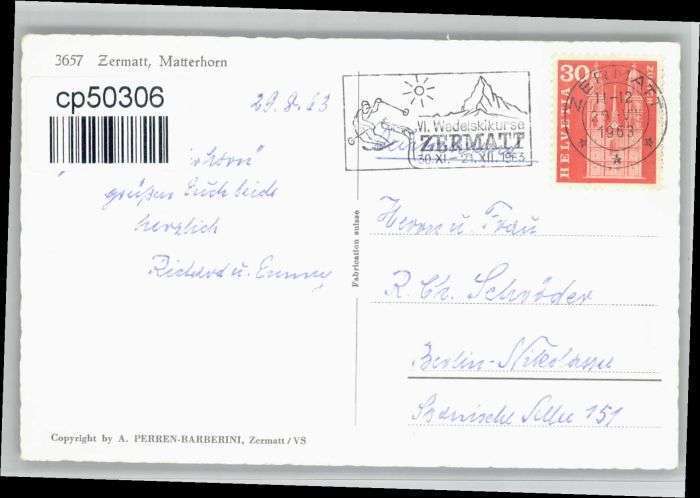 3657 Zermatt, Matterhorn
cp50306
29.8.63
grüßen Euch beide
herzlich
Richard u. Emmy
Fabrication suisse
VI. Wedelskikurse
ZERMATT
30.XI.–21.XII.1963
HELVETIA
30
ZERMATT
11-12
1963
Herrn u. Frau
R. Ch. Schröder
Berlin-Nikolassee
Spanische Allee 151
Copyright by A. PERREN-BARBERINI, Zermatt/VS